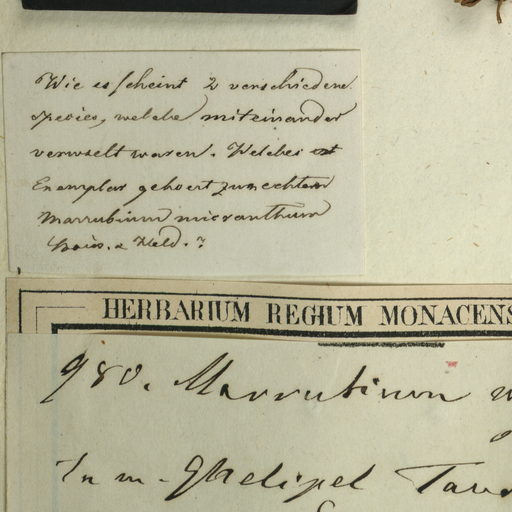 Wie es scheint 2 verschiedene
species, welche miteinander
verwselt waren. Welches ist
Exemplar gehoert zum echten
Marrubium micranthum
Boiss. & Held.?
HERBARIUM REGIUM MONACENS
980. Marrubium
In m. Ghelipel Taur